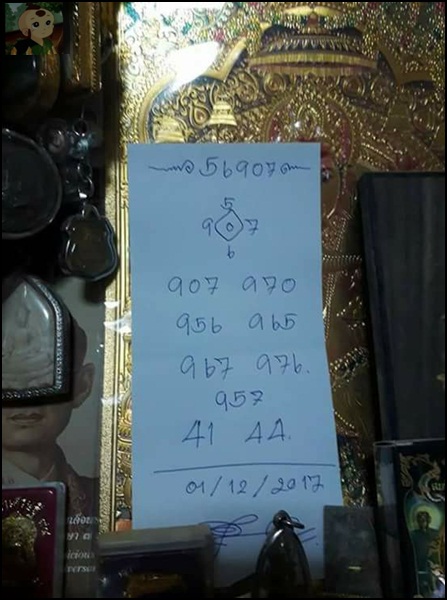 56907
5
9 0 7
6
907 970
956 965
967 976.
957
41 44.
01/12/2017